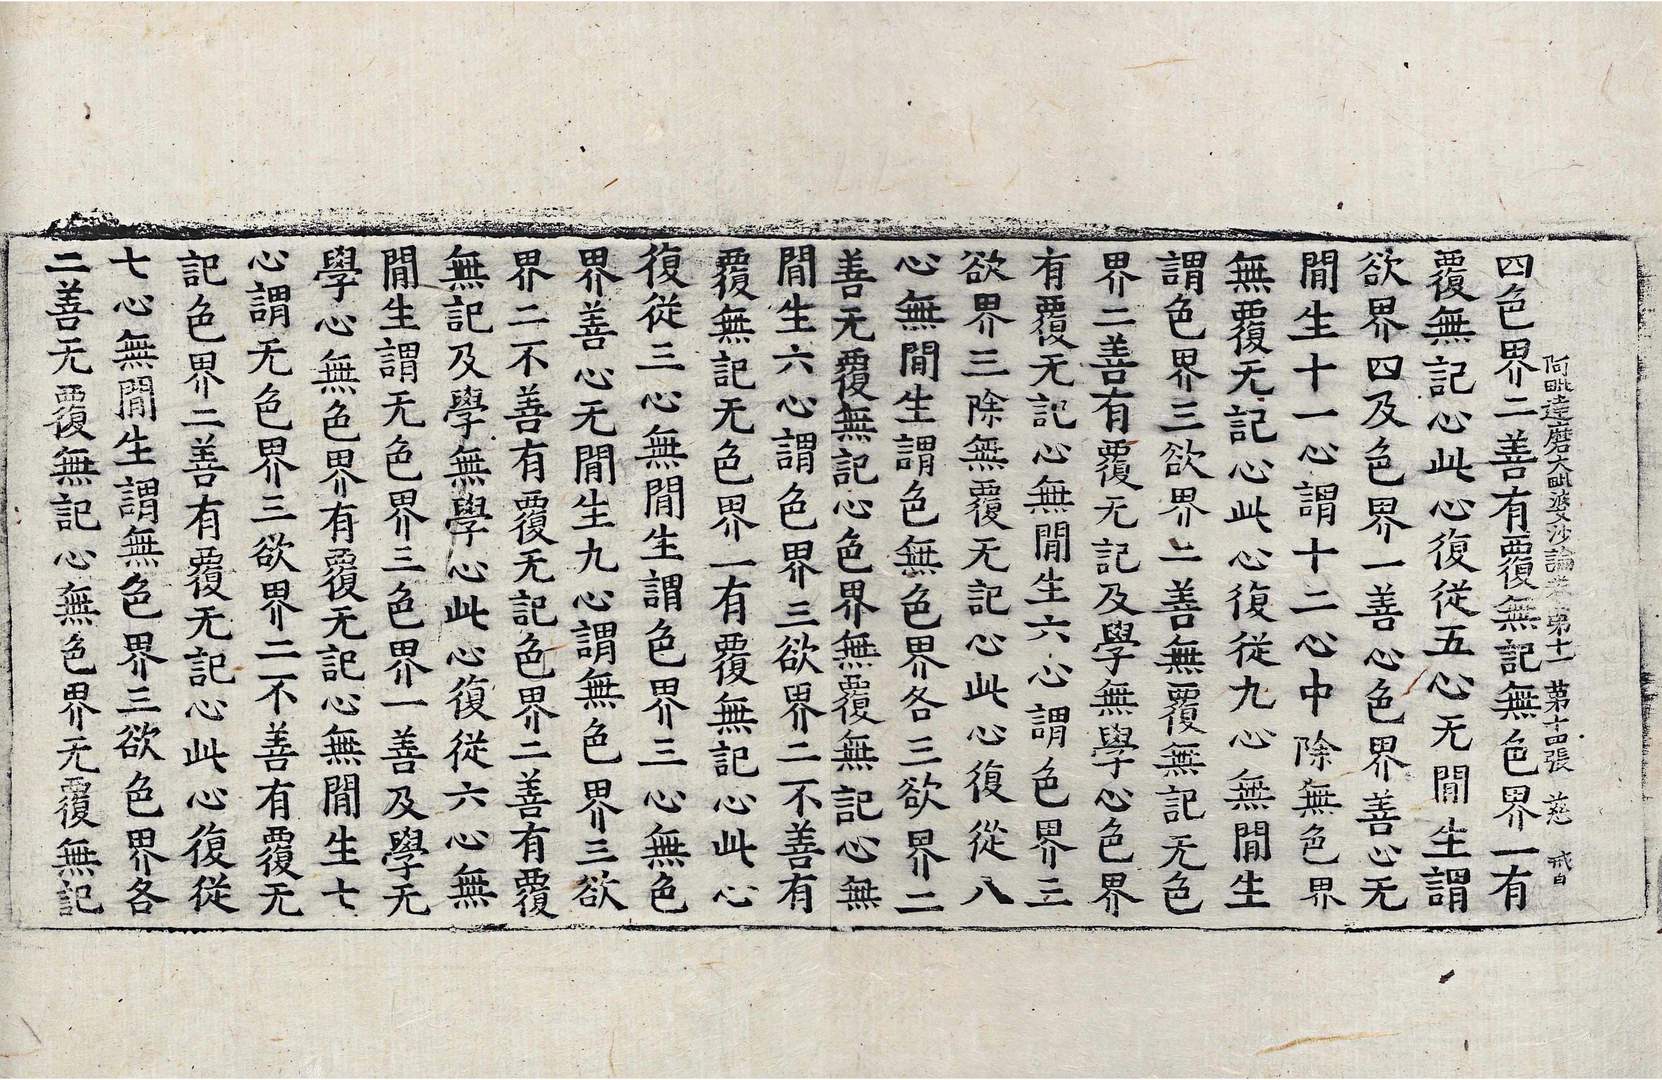 阿毗達磨大毗婆沙論卷第十一 第十四張 慈
四色界二善有覆無記無色界一有
覆無記心此心復從五心无閒生謂
欲界四及色界一善心色界善心无
閒生十一心謂十二心中除無色界
無覆无記心此心復從九心無閒生
謂色界三欲界二善無覆無記无色
界二善有覆无記及學無學心色界
有覆无記心無閒生六心謂色界三
欲界三除無覆无記心此心復從八
心無閒生謂色無色界各三欲界二
善无覆無記心色界無覆無記心無
閒生六心謂色界三欲界二不善有
覆無記无色界一有覆無記心此心
復從三心無閒生謂色界三心無色
界善心无閒生九心謂無色界三欲
界二不善有覆无記色界二善有覆
無記及學無學心此心復從六心無
閒生謂无色界三色界一善及學无
學心無色界有覆无記心無閒生七
心謂无色界三欲界二不善有覆无
記色界二善有覆无記心此心復從
七心無閒生謂無色界三欲色界各
二善无覆無記心無色界无覆無記